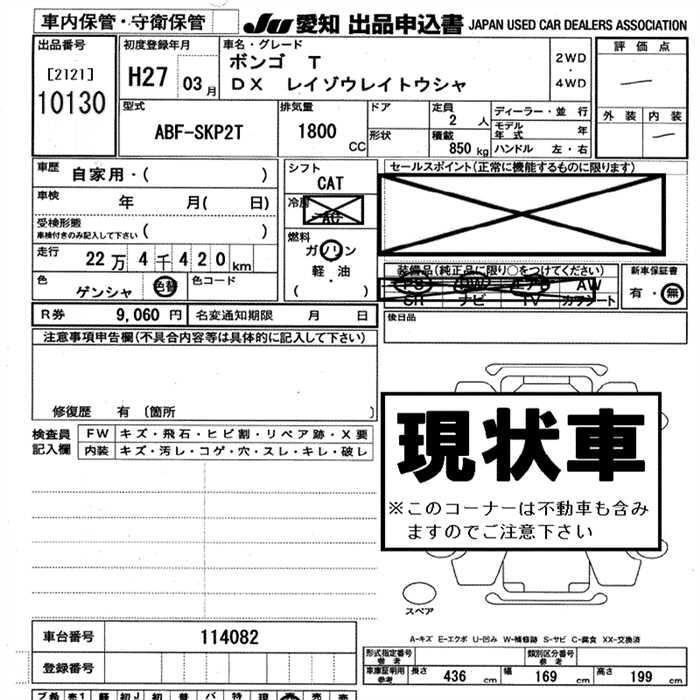 車内保管・守衛保管 JU 愛知 出品申込書 JAPAN USED CAR DEALERS ASSOCIATION
出品番号 初度登録年月 車名・グレード 評価点
[2121] H27 03月 ボンゴ T 2WD
10130 DX レイゾウレイトウシャ ・
4WD
型式 排気量 ドア 定員 ディーラー・並行 外装 内装
ABF-SKP2T 1800 CC 形状 2 人 モデル年式 年
積載 850 kg ハンドル 左・右
車歴 自家用・( ) シフト セールスポイント(正常に機能するものに限ります)
CAT
車検 年 月( 日) 冷房
AC
受検形態
車検付きのみ記入して下さい ( ) 燃料
走行 22万4千420km ガソリン
軽・油
色 ゲンシャ 色替 色コード ( ・ )
装備品(純正品に限り○をつけてください) 新車保証書
PS PW エアB AW 有・無
SR ナビ TV カワシート
R券 9,060円 名変通知期限 月 日 後日品
注意事項申告欄(不具合内容等は具体的に記入して下さい)
修復歴 有 〔箇所 〕
検査員 FW キズ・飛石・ヒビ割・リペア跡・X要
記入欄 内装 キズ・汚レ・コゲ・穴・スレ・キレ・破レ
現状車
※このコーナーは不動車も含み
ますのでご注意下さい
スペア
車台番号 114082
A-キズ E-エクボ U-凹み W-補修跡 S-サビ C-腐食 XX-交換済
登録番号 形式指定番号 参考 類別区分番号 参考
車庫証明用 参考 長さ 436 cm 幅 169 cm 高さ 199 cm